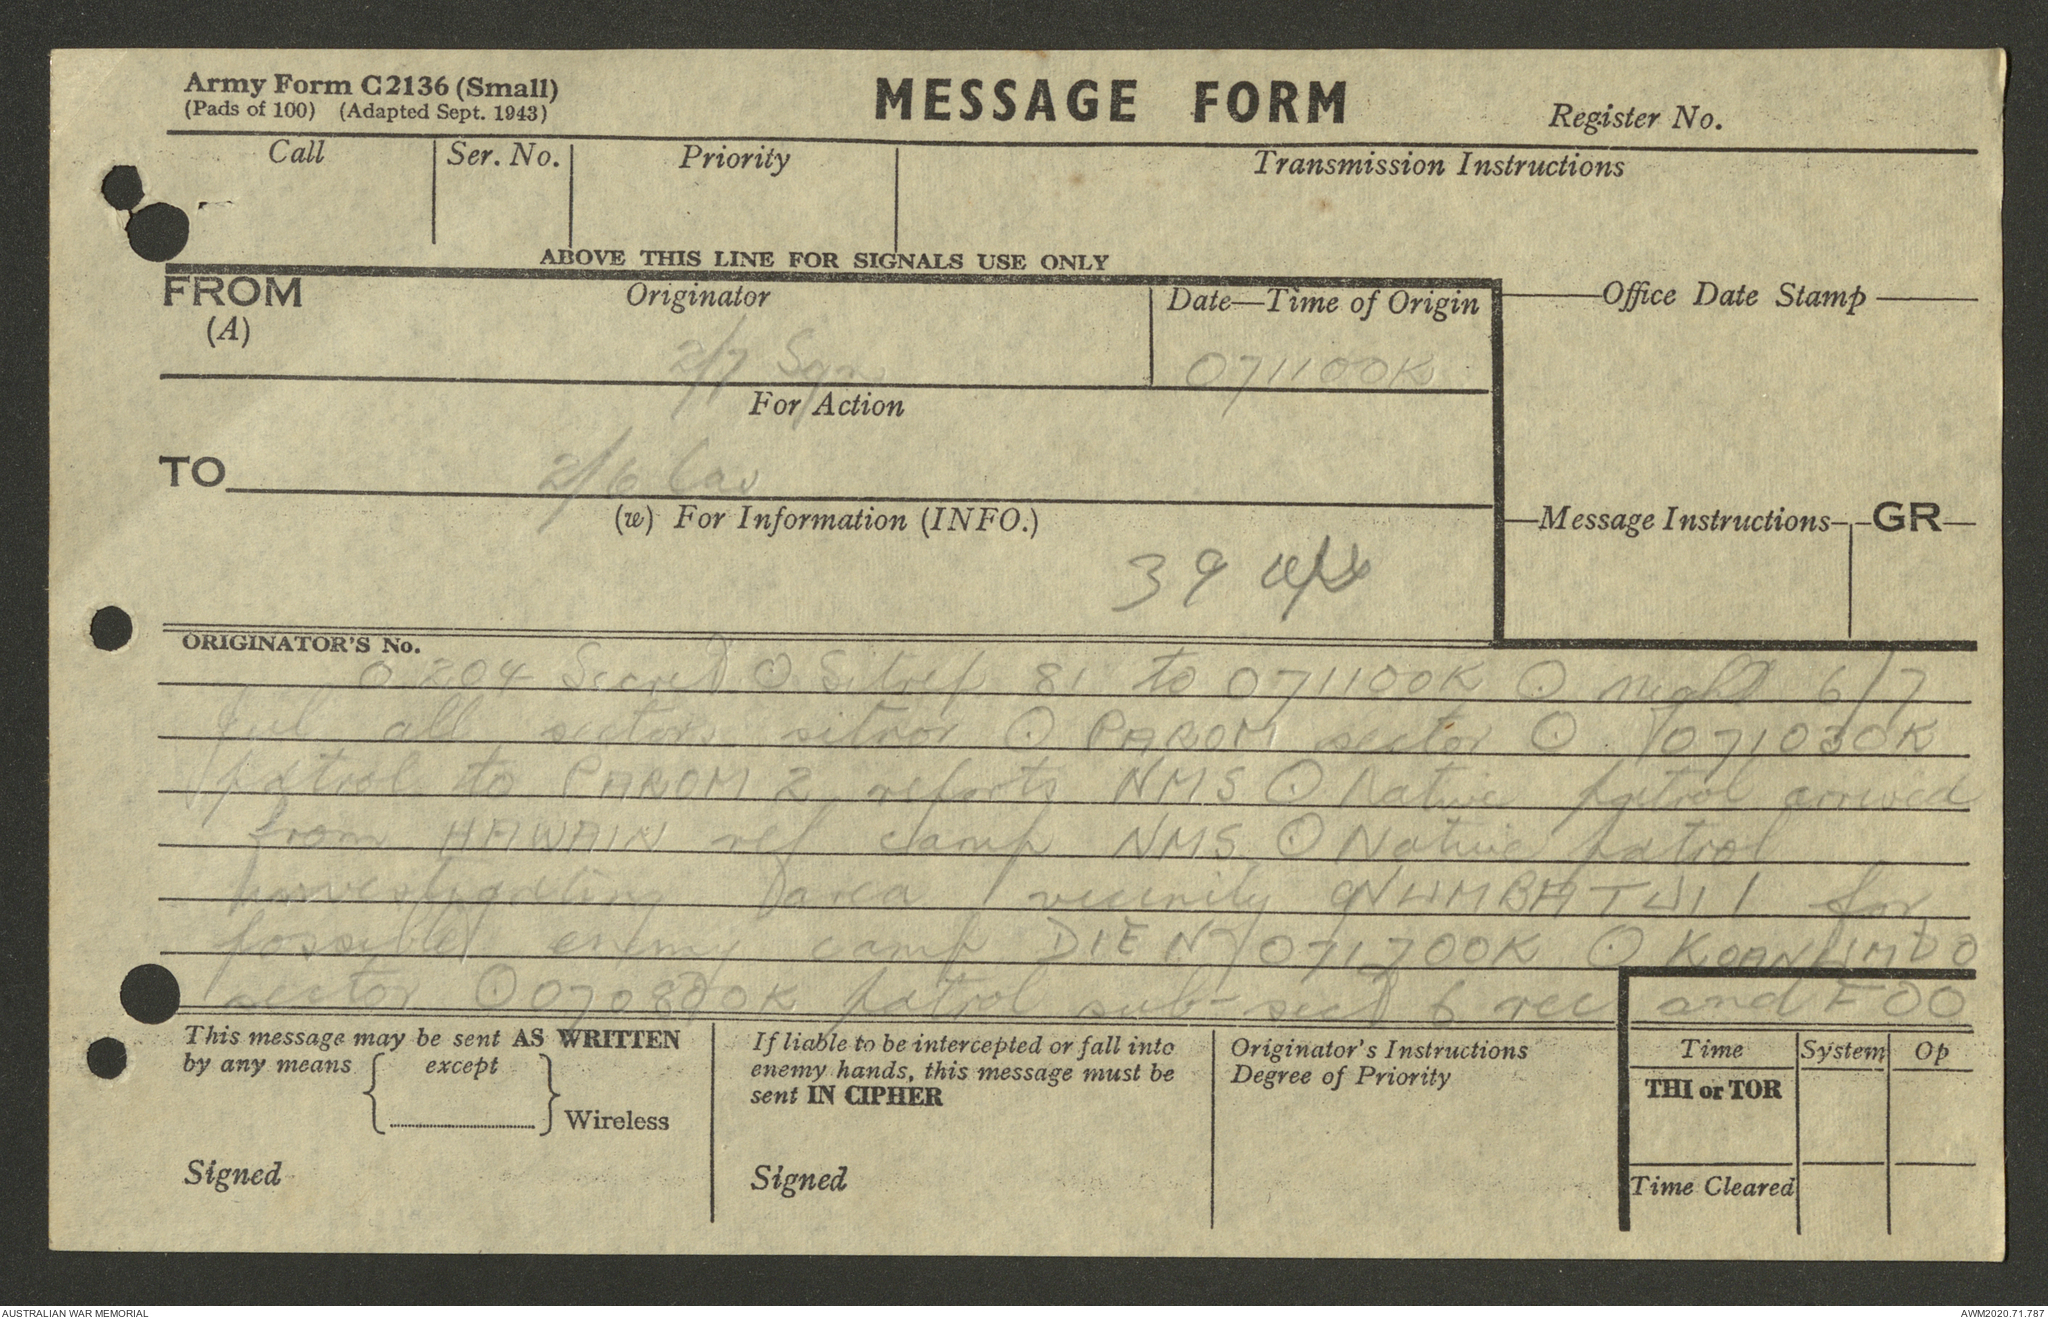 Army Form C2136 (Small)
(Pads of 100) (Adapted Sept. 1943)
MESSAGE FORM
Register No.
Call
Ser. No.
Priority
Transmission Instructions
ABOVE THIS LINE FOR SIGNALS USE ONLY
FROM
(A)
Originator
2/7 Sqn
Date—Time of Origin
071100K
Office Date Stamp
For Action
TO
2/6 Cav
(w) For Information (INFO.)
39
Message Instructions
GR
ORIGINATOR'S No.
O 204 Secret O Sitrep 81 to 071100K O night 6/7
jul all sectors sitnor O PAROM sector O 071030K
patrol to PAROM 2 reports NMS O Native patrol arrived
from HAWAIN ref camp NMS O Native patrol
investigating area vicinity for
possible enemy camp 071700K O
sector O 070800K patrol sub-sect 6 rec and FOO
This message may be sent AS WRITTEN
by any means except
Wireless
Signed
If liable to be intercepted or fall into
enemy hands, this message must be
sent IN CIPHER
Signed
Originator's Instructions
Degree of Priority
Time
System
Op
THI or TOR
Time Cleared
AUSTRALIAN WAR MEMORIAL
AWM2020.71.787